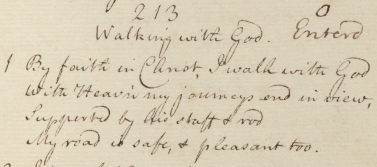 213
Walking with God. Enterd
1 By faith in Christ, I walk with God
With Heav'n my journeys end in view,
Supported by his staff & rod
My road is safe, & pleasant too.